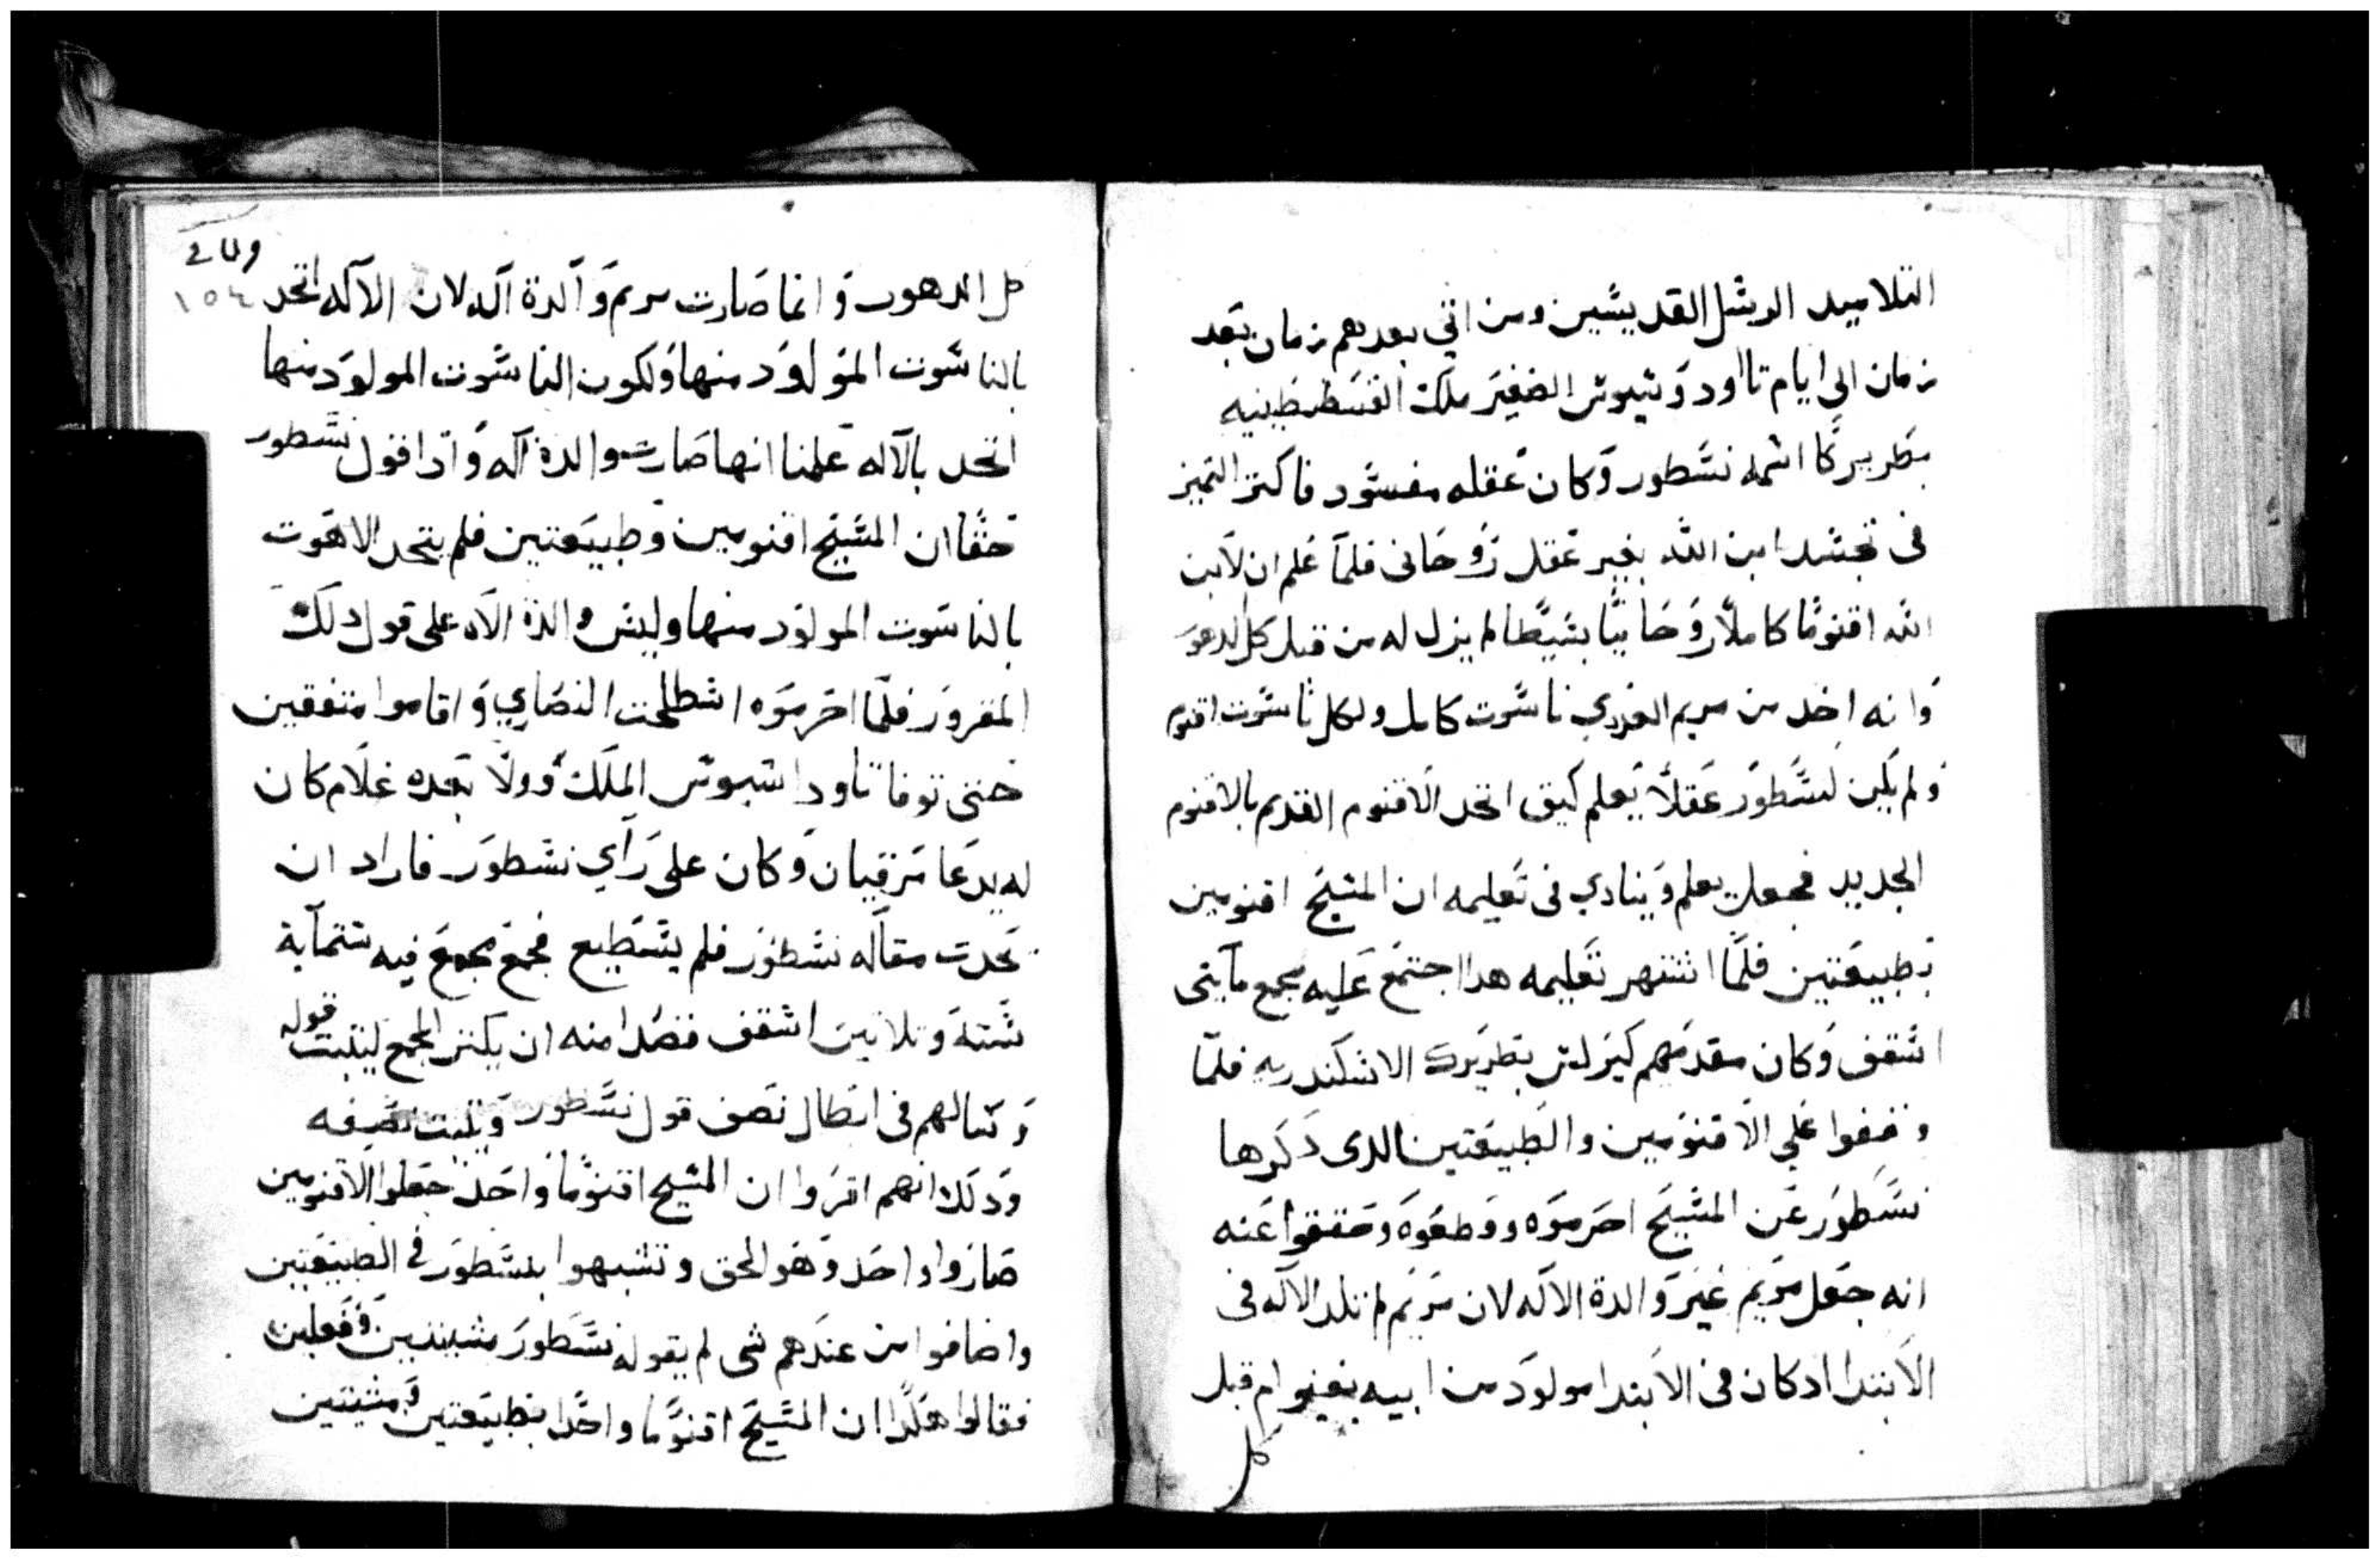 التلاميد الرسل القديسين ومن اتي بعدهم زمان بعد
زمان الى ايام تااودوسيوس الصغير ملك القسطنطينيه
بطريركا اسمه نسطور وكان عقله مفسود فاكتر التميز
فى تجسد ابن الله بغير عقل روحانى فلما علم ان لابن
الله اقنوما كاملا روحانيا بسيطا لم يزل له من قبل كل الدهور
وانه اخد من مريم العدري ناسوت كامل ولكل ناسوت اقنوم
ولم يكن لنسطور عقلا يعلم كيف اتحد الاقنوم القديم بالاقنوم
الجديد فجعل يعلم وينادي فى تعليمه ان المسيح اقنومين
بطبيعتين فلما انتهر تعليمه هدا اجتمع عليه مجمع مايتى
اسقف وكان مقدمهم كيرلس بطريرك الاسكندريه فلما
وقفوا علي الاقنومين والطبيعتين الدى دكرها
نسطور عن المسيح احرموه وقطعوه وحققوا عنه
انه جعل مريم غير والدة الاله لان مريم لم تلد الاله فى
الابتدا ادكان فى الابتدا مولود من ابيه بغير ام قبل
كل
١٥٤
كل الدهور وانما صارت مريم والدة اله لان الاله اتحد
بالناسوت المولود منها ولكون الناسوت المولود منها
اتحد بالاله علمنا انها صارت والدة اله واد اقول نسطور
حقا ان المسيح اقنومين وطبيعتين فلم يتحد الاهوت
بالناسوت المولود منها وليس والدة الاه على قول دلك
المقرور فلما احرموه اسطلحت النصاري واقاموا متفقين
حتى توفا تاوداسيوس الملك وولا بعده غلام كان
له يدعا مرقيان وكان على راي نسطور فاراد ان
يحدت مقاله نسطور فلم يستطيع فجمع مجمع فيه ستماية
ستة وتلاتين اسقف قصدا منه ان يكتر المجمع ليتبت قوله
وسالهم فى ابطال نصف قول نسطور وتبت نصيفه
ودلك انهم اقروا ان المسيح اقنوما واحد جعلوا الاقنومين
صاروا واحد وهو الحق وتشبهوا بنسطور فى الطبيعتين
واضافوا من عندهم شى لم يقوله نسطور مشيتين وفعلين
فقالوا هكدا ان المسيح اقنوما واحدا بطبيعتين ومشيتين